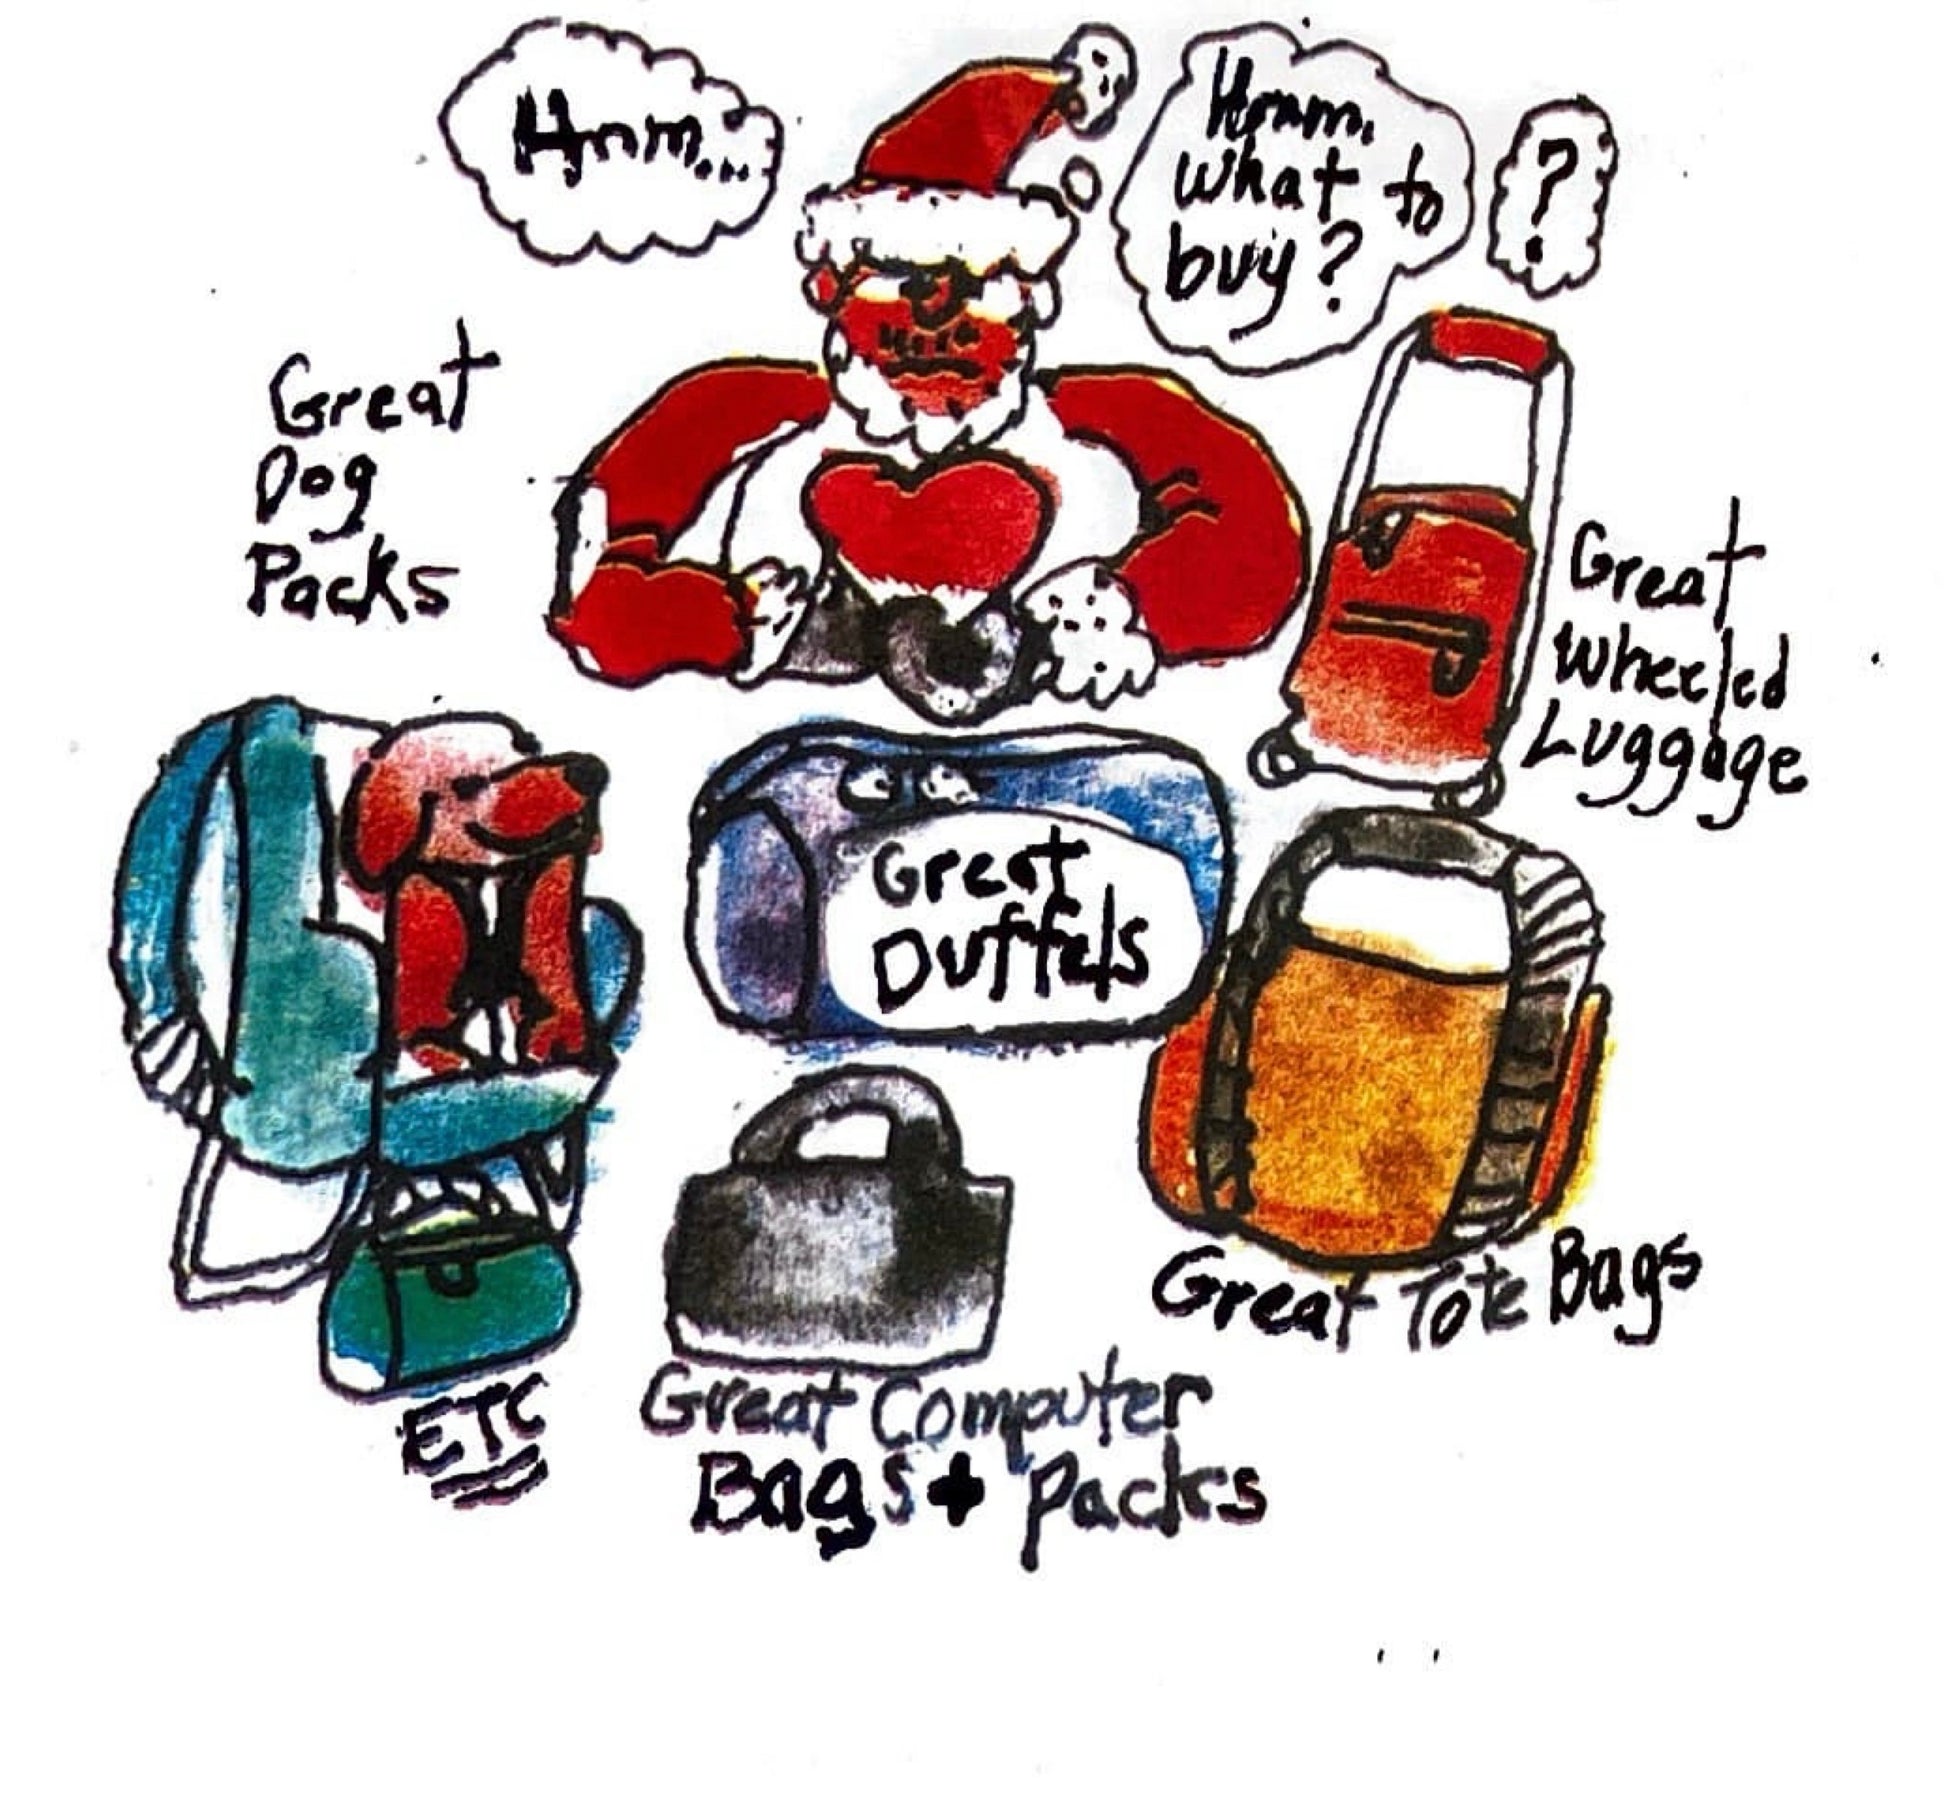 Hmm...
Hmm.
What to
buy?
?
Great
Dog
Packs
Great
Wheeled
Luggage
Great
Duffels
Great Tote Bags
ETC
Great Computer
Bags + Packs